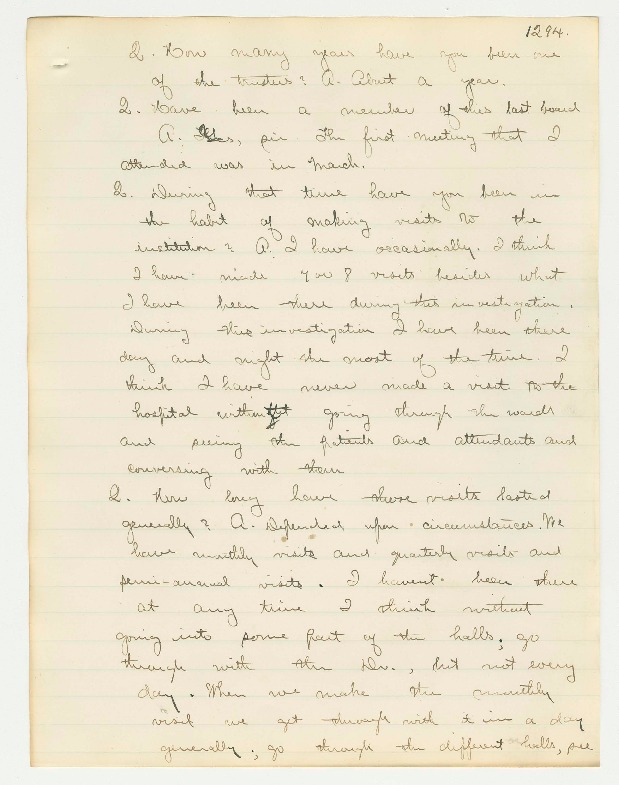 1294.
Q. How many years have you been one
of the trustees? A. About a year.
Q. Have been a member of this last board
A. Yes, sir. The first meeting that I
attended was in March.
Q. During that time have you been in
the habit of making visits to the
institution? A. I have occasionally. I think
I have made 7 or 8 visits besides what
I have been there during this investigation.
During this investigation I have been there
day and night the most of the time. I
think I have never made a visit to the
hospital without going through the wards
and seeing the patients and attendants and
conversing with them
Q. How long have those visits lasted
generally? A. Depended upon circumstances. We
have monthly visits and quarterly visits and
semi-annual visits. I havent been there
at any time I think without
going into some part of the halls; go
through with the Dr., but not every
day. When we make the monthly
visit we get through with it in a day
generally; go through the different halls, see